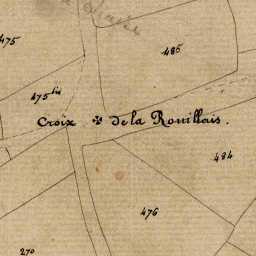 475
486
475 bis
Croix ✠ de la Rouillais.
484
476
270